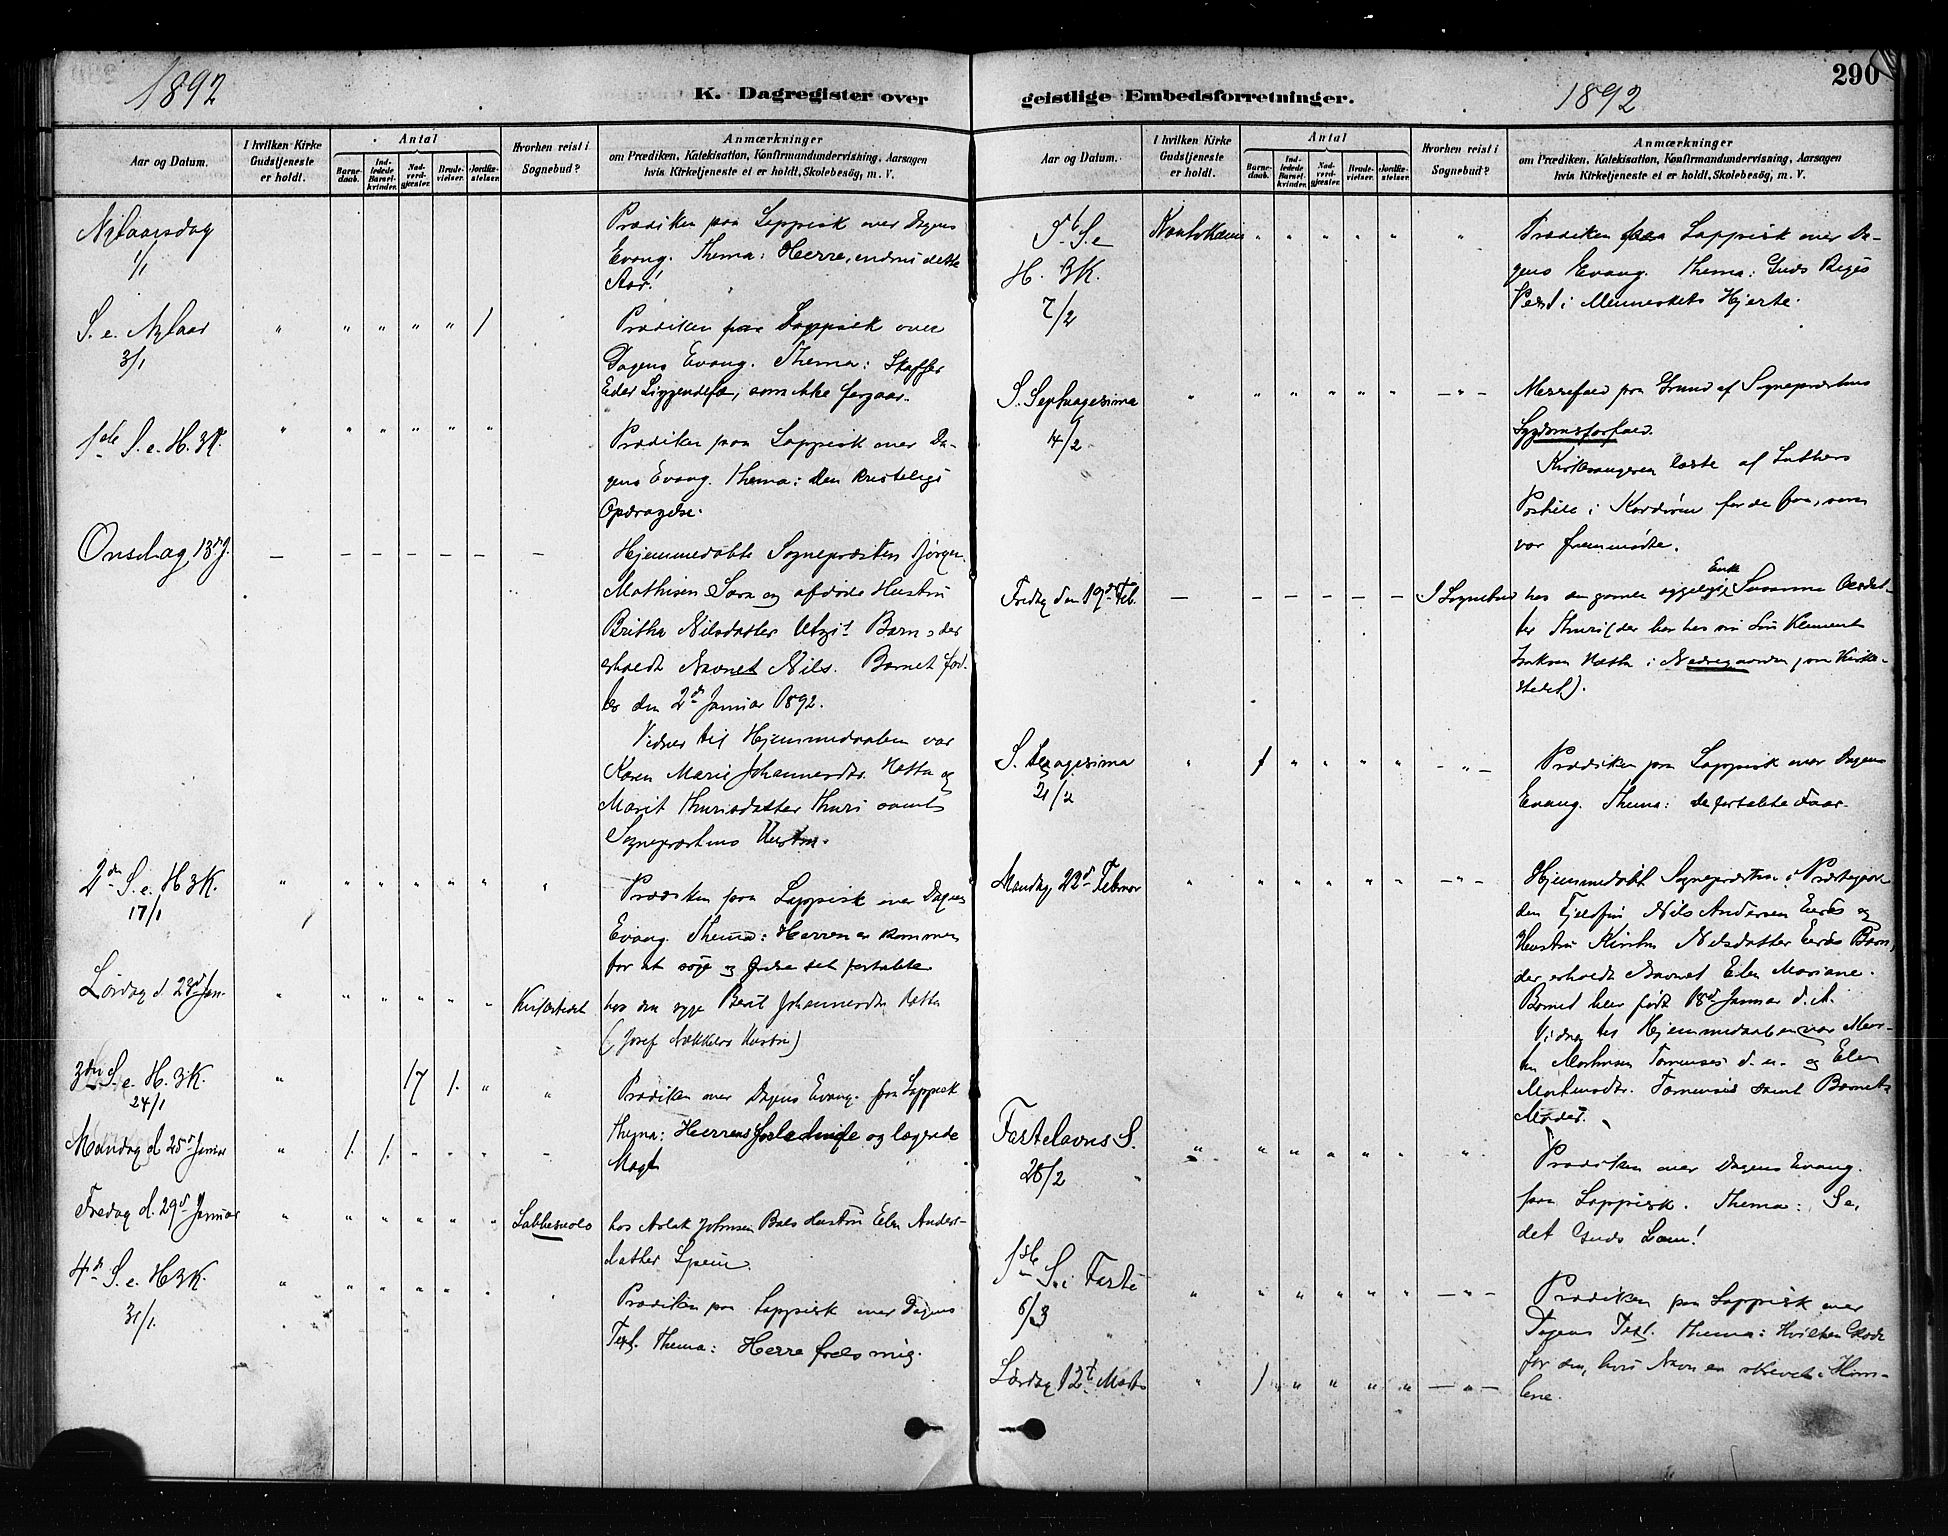 1892
K. Dagregister over
Aar og Datum.
I hvilken Kirke Gudstjeneste er holdt.
Antal
Barnedaab.
Indledede Barselkvinder.
Nadverdgjester.
Brudevielser.
Jordfæstelser.
Hvorhen reist i Sognebud?
Anmærkninger
om Prædiken, Katekisation, Konfirmandundervisning, Aarsagen
hvis Kirketjeneste ei er holdt, Skolebesøg, m. V.
Nytaarsdag
1/1
Prædiken paa Lappisk over Dagens
Evang. Thema: Herre, endnu dette
Aar!
S. e. Nytaar " " " " " 1
3/1
Prædiken paa Lappisk over
Dagens Evang. Thema: Skaffer
Eder Liggendefæ, som ikke forgaar.
1ste S. e. H. 3 K. " " " " " "
Prædiken paa Lappisk over Da-
gens Evang. Thema: den kristelige
Opdragelse.
Onsdag 13d J. – – – – – – –
Hjemmedøbte Sognepræsten Jörgen
Mathisen Sara og afdøde Hustru
Britha Nilsdatter Utzi's Barn, der
erholdt Navnet Nils. Barnet fød-
tes den 2d Januar 1892.
Vidner til Hjemmedaaben var
Karen Marie Johannesdtr. Hætta og
Marit Thurisdatter Thuri samt
Sognepræstens Hustru.
2den S. e. H 3 K. " " " " " " "
17/1
Prædiken paa Lappisk over Dagens
Evang. Thema: Herren er kommen
for at søge og frelse det fortabte
Lørdag d. 23d Jan. " " " " " " Kirkestedet
hos den syge Berit Johannesdtr Hætta
(Josef Nækkelæs Hustru)
3die S. e. H. 3 K. " 17 1. " "
24/1
Prædiken over Dagens Evang. paa Lappisk
Thema: Herrens forladende og lægende
Magt
Mandag d 25d Januar " 1. 1. " " " –
Fredag d. 29d Januar " " " " " "
hos Aslak Johnsen Bals Hustru Elen Anders-
datter Spein.
4de S. e. H 3 K. " " " " " " "
31/1.
Prædiken paa Lappisk over Dagens
Text. Thema: Herre frels mig.
290
geistlige Embedsforretninger.
1892
Aar og Datum.
I hvilken Kirke Gudstjeneste er holdt.
Antal
Barnedaab.
Indledede Barselkvinder.
Nadverdgjester.
Brudevielser.
Jordfæstelser.
Hvorhen reist i Sognebud?
Anmærkninger
om Prædiken, Katekisation, Konfirmandundervisning, Aarsagen
hvis Kirketjeneste ei er holdt, Skolebesøg, m. V.
5t S. e Kautokeino " " " " " "
H. 3 K.
7/2
Prædiken paa Lappisk over Da-
gens Evang. Thema: Guds Riges
Vext i Menneskets Hjerte.
S. Septuagesima " " " " " " – " –
14/2
Messefald paa Grund af Sognepræstens
Sygdomsforfald.
Kirkesangeren læste af Luthers
Postille i Kordøren for de faa, som
var fremmødte.
Fredag den 19d Feb. – – – – – – I Sognebud
hos den gamle sygelige Enke Susanna Olsdat-
ter Thuri (der bor hos sin Søn Klemet
Isaksen Hætta i Nedregaarden paa Kirke-
stedet).
S. Sexagesima " 1 " " " " – " –
21/2
Prædiken paa Lappisk over Dagens
Evang. Thema: de fortabte Faar.
Mandag 22d Februar " " " " " " – " –
Hjemmedøbt Sognepræsten i Præstegaar-
den Fjeldfin Nils Andersen Eiras og
Hustru Kirsten Nilsdatter Eiras Barn,
der erholdt Navnet Elen Mariane.
Barnet blev født 18d Januar d. A.
Vidner til Hjemmedaaben var Mor-
ten Mortensen Tornensis d. u. og Elen
Mortensdtr. Tornensis samt Barnets
Moder.
Fastelavns S. " " " " " " "
28/2
Prædiken over Dagens Evang.
paa Lappisk. Thema: Se,
det Guds Lam!
1ste S. i Faste " " " " " " – " –
6/3
Prædiken paa Lappisk over
Dagens Text. Thema: Hvilken Glæde
for den, hvis Navn er skrevet i Him-
lene.
Lørdag 12t Marts " 1 " " " " – " –